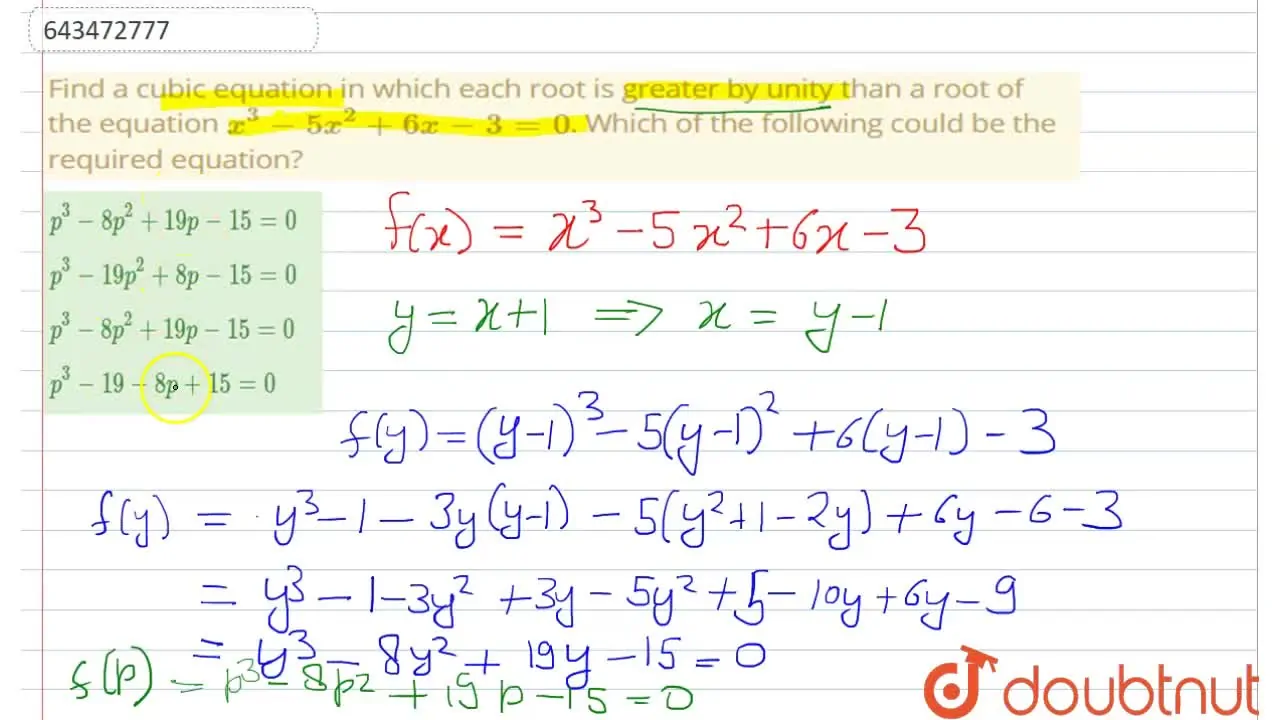 643472777
Find a cubic equation in which each root is greater by unity than a root of
the equation x³ − 5x² + 6x − 3 = 0. Which of the following could be the
required equation?
p³ − 8p² + 19p − 15 = 0
p³ − 19p² + 8p − 15 = 0
p³ − 8p² + 19p − 15 = 0
p³ − 19 − 8p + 15 = 0
f(x) = x³ − 5x² + 6x − 3
y = x+1 ⇒ x = y−1
f(y) = (y−1)³ − 5(y−1)² + 6(y−1) − 3
f(y) = y³ − 1 − 3y(y−1) − 5(y²+1−2y) + 6y − 6 − 3
= y³ − 1 − 3y² + 3y − 5y² + 5 − 10y + 6y − 9
= y³ − 8y² + 19y − 15 = 0
f(p) = p³ − 8p² + 19p − 15 = 0
doubtnut